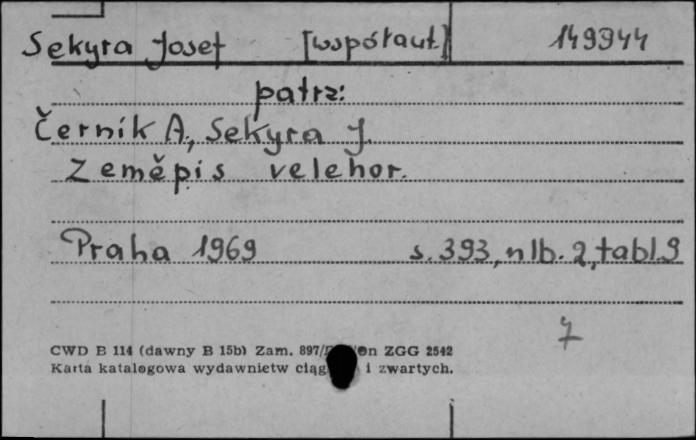 Sekyra Josef [współaut] 149944
patrz:
Černík A., Sekyra J.
Zeměpis velehor.
Praha 1969 s. 393, nlb. 2, tabl. 9
7
CWD B 114 (dawny B 15b) Zam. 897/ n ZGG 2542
Karta katalogowa wydawnictw ciąg i zwartych.